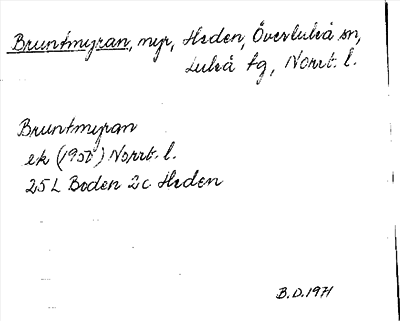 Bruntmyran, myr, Heden, Överluleå sn,
Luleå tg, Norrb. l.
Bruntmyran
ek (1950) Norrb. l.
25L Boden 2c Heden
B.D. 1971